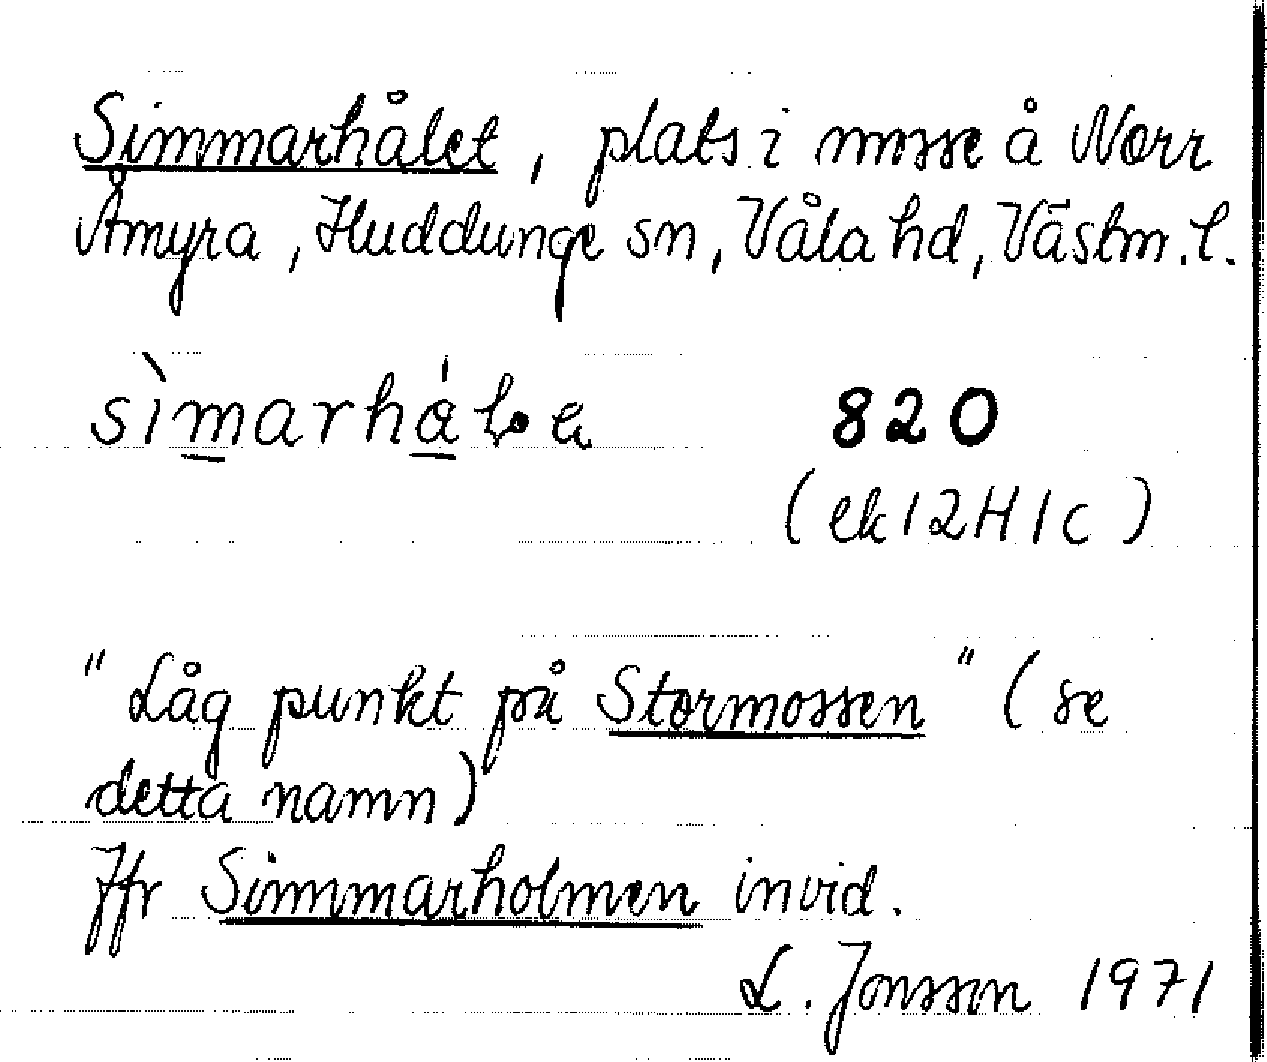 Simmarhålet, plats i mosse å Norr
Åmyra, Huddunge sn, Våla hd, Västm. l.
820
(ek 12H1c)
"Låg punkt på Stormossen" (se
detta namn)
Jfr Simmarholmen invid.
L. Jonsson 1971